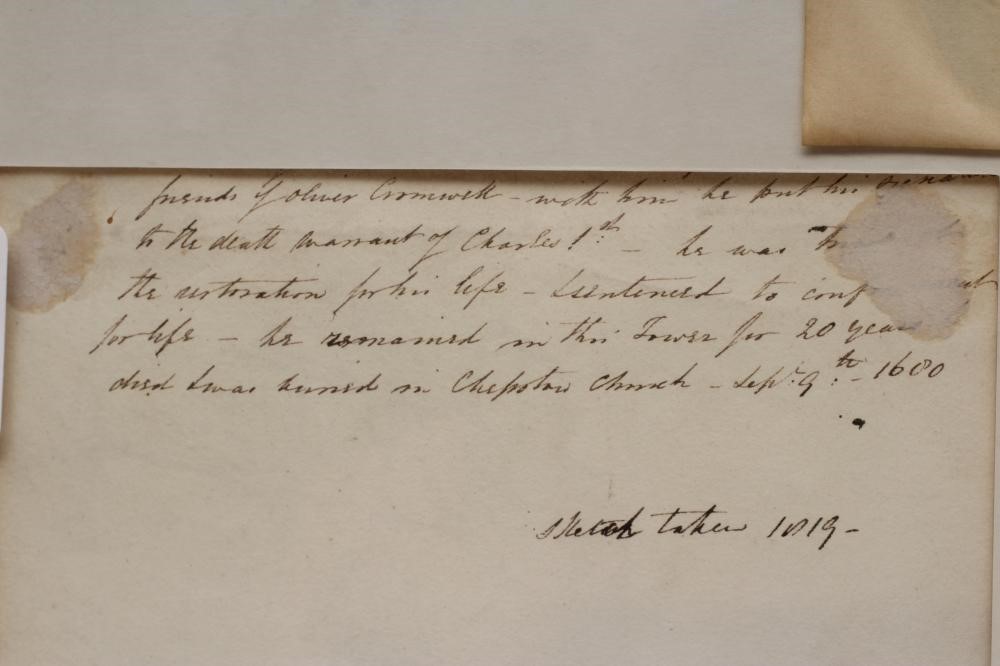 friends of Oliver Cromwell - with him he put his
to the death warrant of Charles 1st. - he was
the restoration for his life - & sentenced to
for life - he remained in this Tower for 20 years
died & was buried in Chepstow Church - Sept. 9th. - 1680
Sketch taken 1819 -